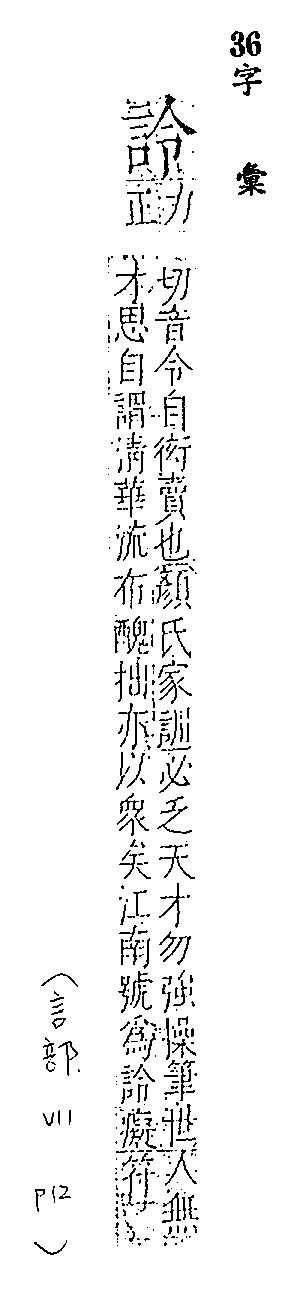 36
字彙
詅力正
切音令自衒賣也顏氏家訓必乏天才勿強操筆世人無
才思自謂淸華流布醜拙亦以衆矣江南號爲詅癡符
(言部 VII P12)